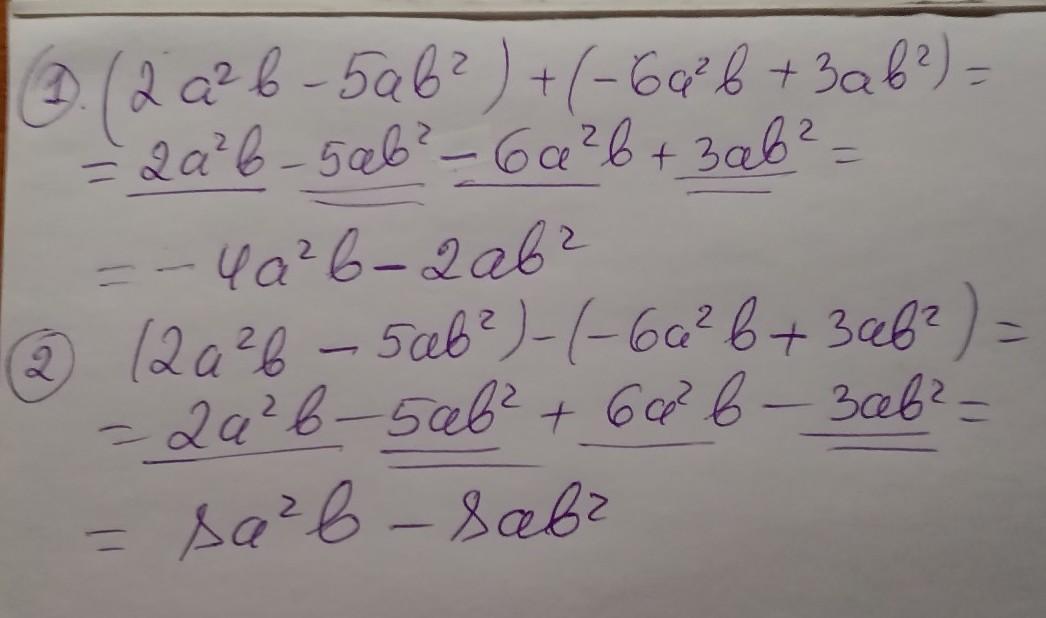 1. (2a²b - 5ab²) + (-6a²b + 3ab²) =
= 2a²b - 5ab² - 6a²b + 3ab² =
= -4a²b - 2ab²
2 (2a²b - 5ab²) - (-6a²b + 3ab²) =
= 2a²b - 5ab² + 6a²b - 3ab² =
= 8a²b - 8ab²